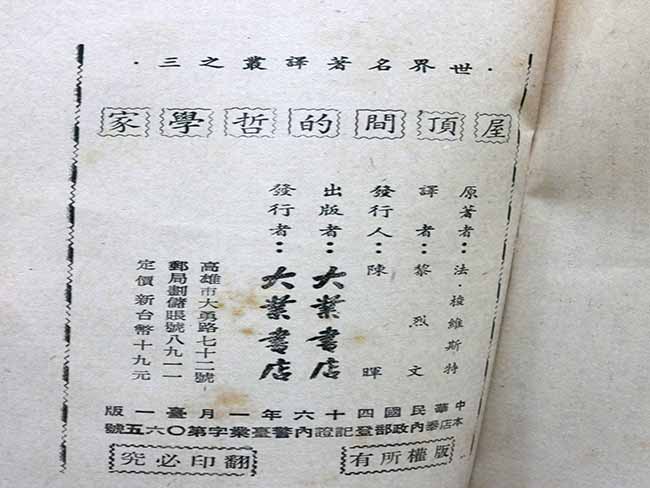 ·世界名著譯叢之三·
屋頂間的哲學家
原著者：法·梭維斯特
譯者：黎烈文
發行人：陳暉
出版者：大業書店
發行者：大業書店
高雄市大勇路七十二號
郵局劃儲賬號八九一一
定價新台幣十九元
中華民國四十六年一月臺一版
本店奉內政部登記證內警臺業字第〇六五號
版權所有
翻印必究